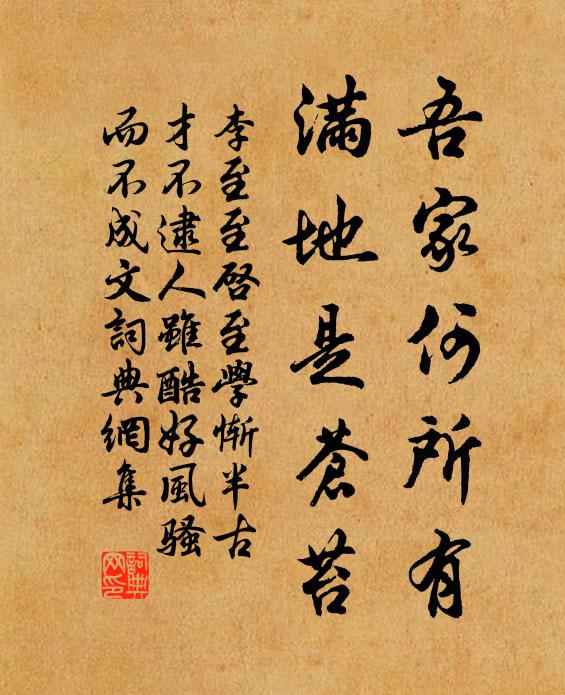 吾家何所有
滿地是蒼苔
李至至啓至學慚半古
才不逮人雖酷好風騷
而不成文詞典網集
詞典网印